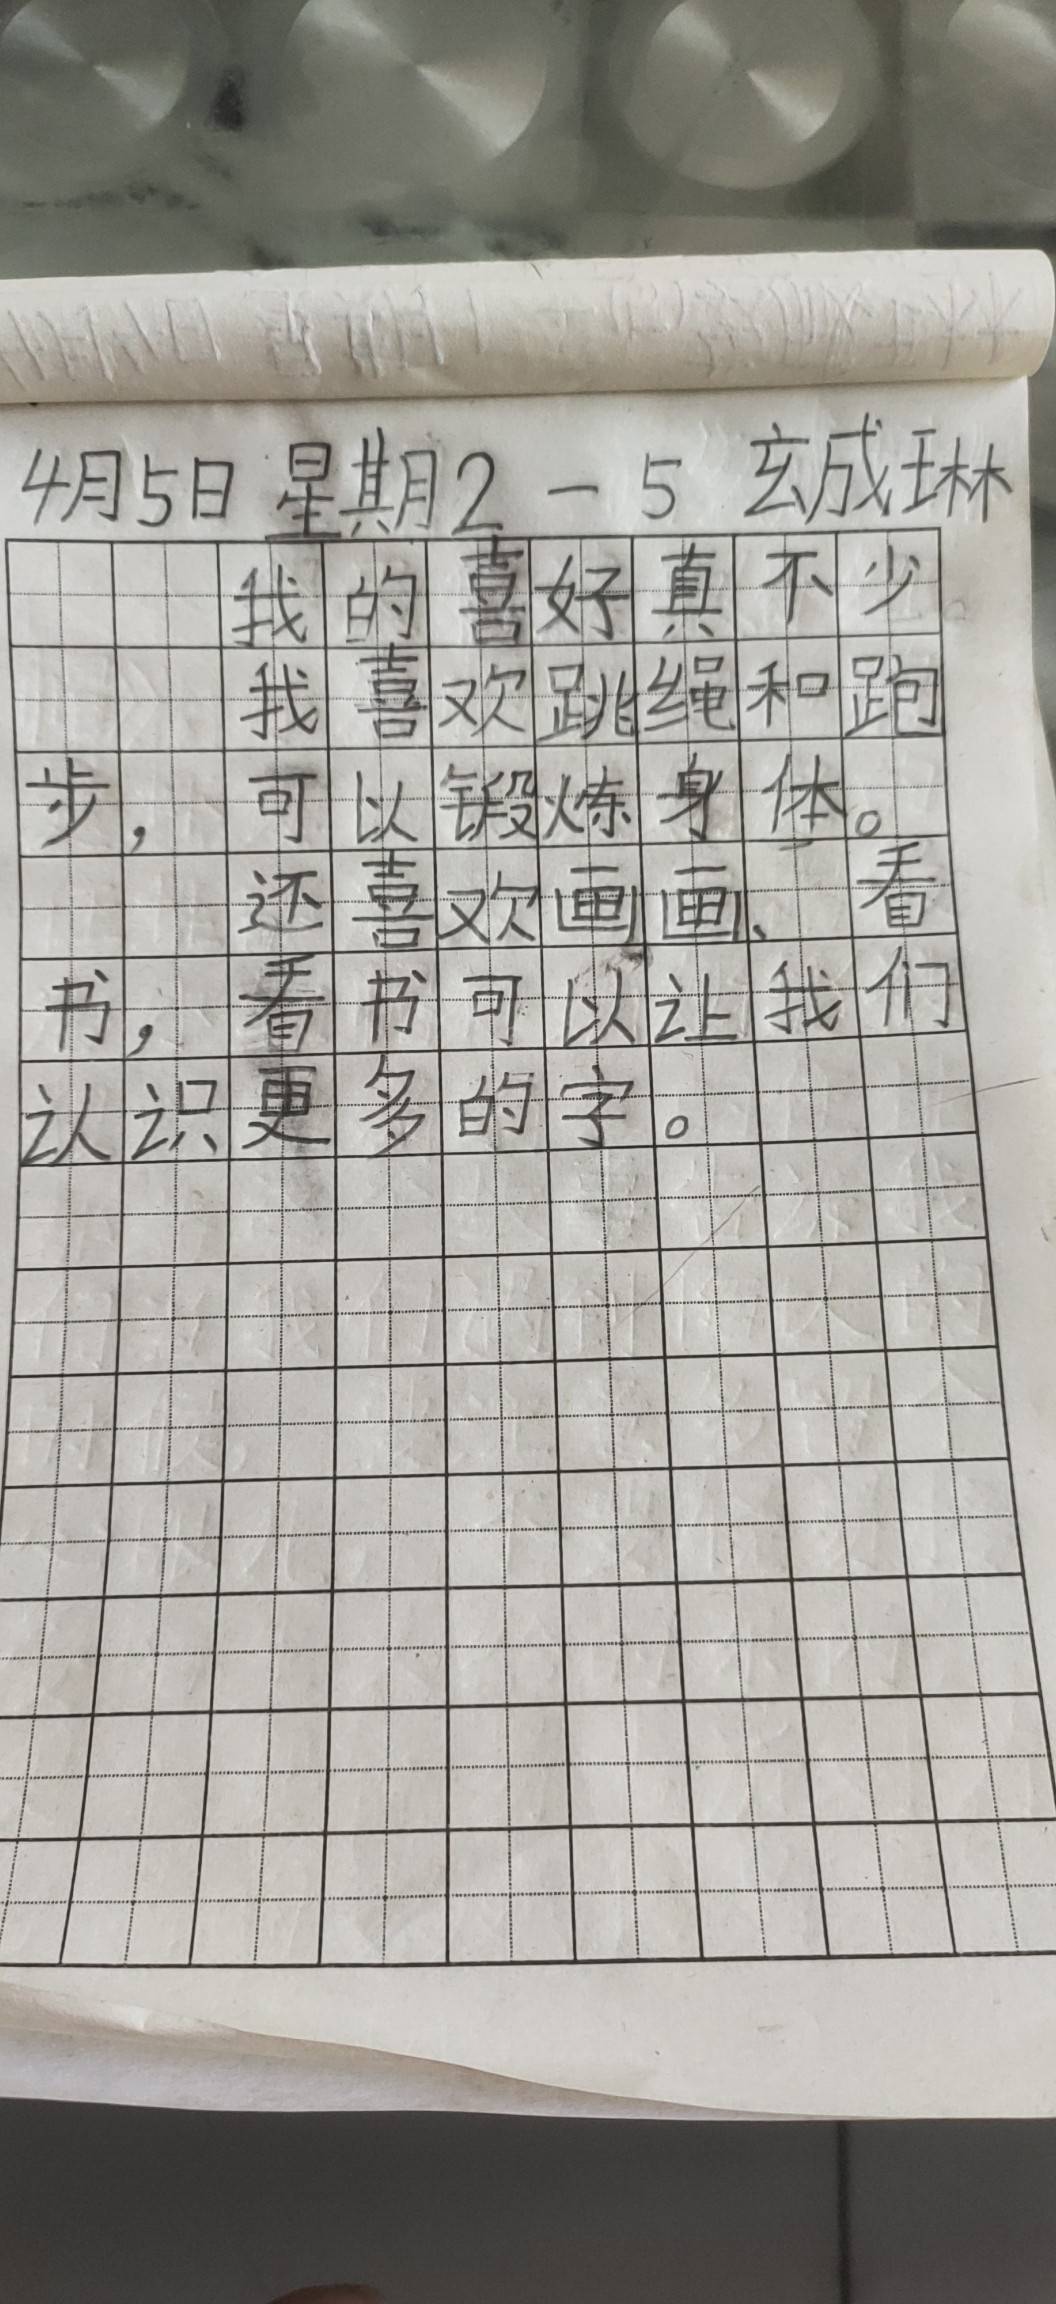 4月5日 星期2 一 5 玄成琳
我的喜好真不少
我喜欢跳绳和跑
步，可以锻炼身体。
还喜欢画画、看
书，看书可以让我们
认识更多的字。